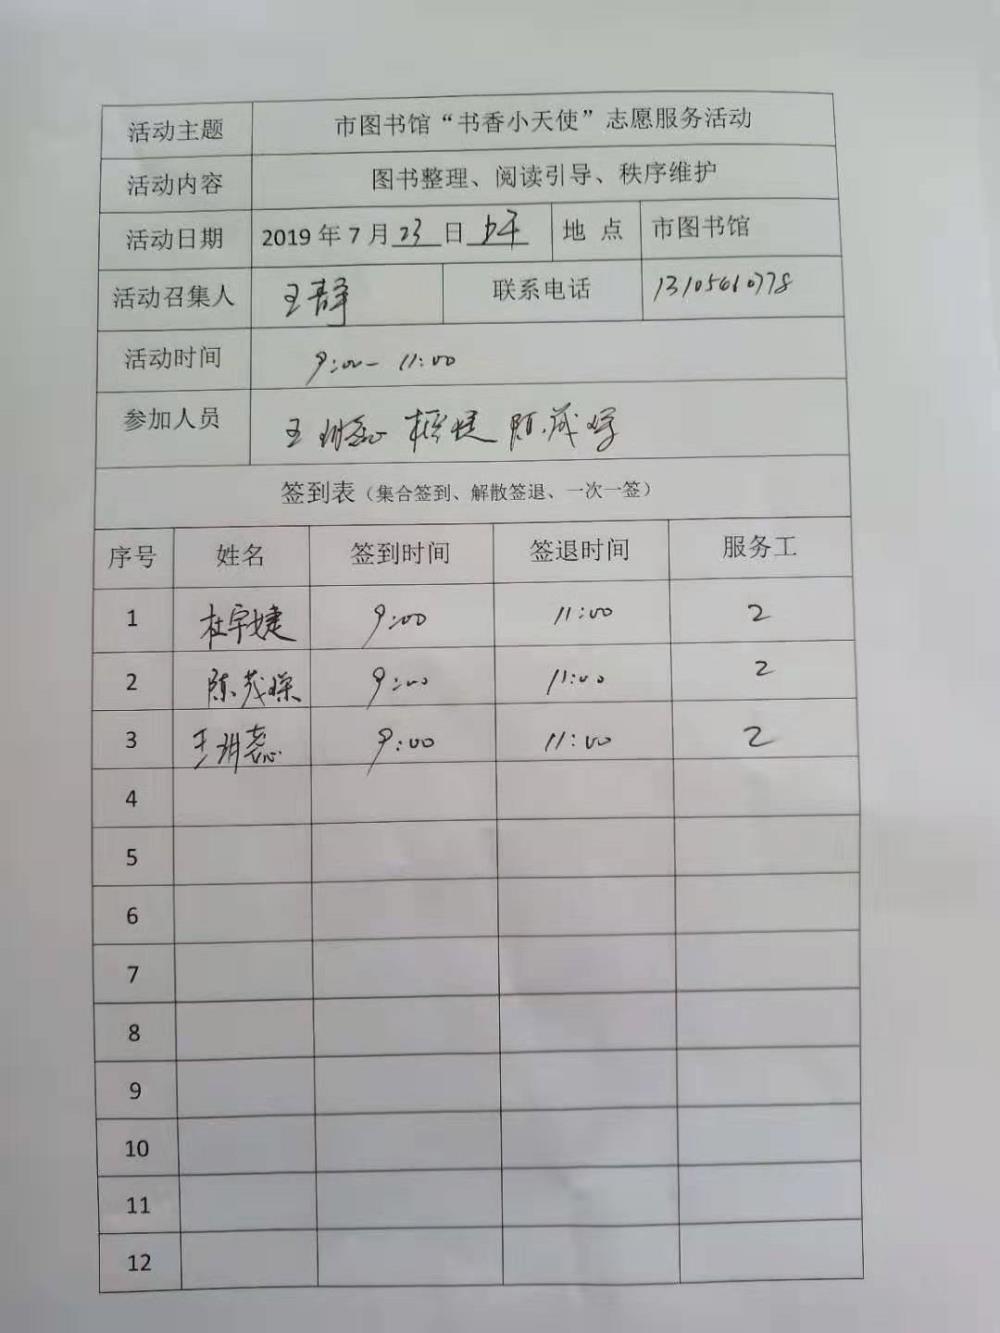 活动主题 市图书馆“书香小天使”志愿服务活动
活动内容 图书整理、阅读引导、秩序维护
活动日期 2019 年 7 月 23 日 上午 地 点 市图书馆
活动召集人 王静 联系电话 13105610778
活动时间 9:00- 11:00
参加人员 王 陈茂
签到表（集合签到、解散签退、一次一签）
序号 姓名 签到时间 签退时间 服务工
1 杜宇婕 9:00 11:00 2
2 陈茂 9:00 11:00 2
3 王 9:00 11:00 2
4
5
6
7
8
9
10
11
12